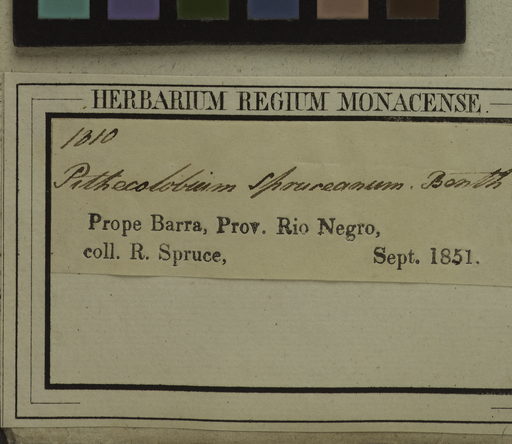 HERBARIUM REGIUM MONACENSE.
1310
Pithecolobium Spruceanum. Benth
Prope Barra, Prov. Rio Negro,
coll. R. Spruce, Sept. 1851.